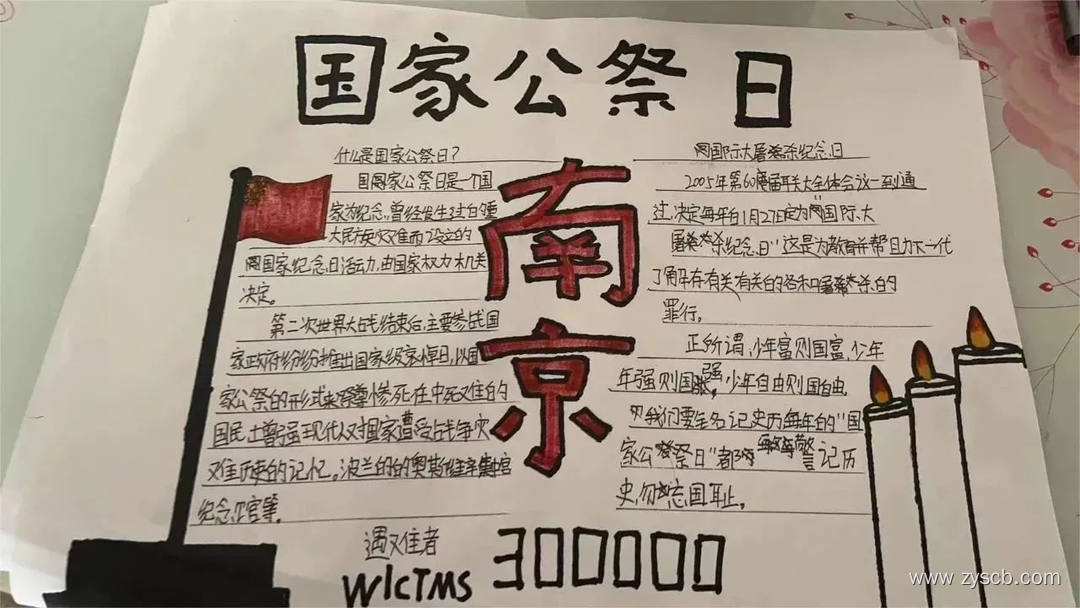 国家公祭日
什么是国家公祭日？
国家公祭日是一个国
家为纪念曾经发生过的重
大民族灾难而设立的
国家纪念日活动,由国家权力机关
决定。
第二次世界大战结束后,主要参战国
家政府纷纷推出国家级哀悼日,以国
家公祭的形式来 惨死在 灾难的
国民,增强现代人对国家遭受战争灾
难历史的记忆。波兰的的奥斯维辛集中营
纪念 宫等。
南京
国际大屠杀纪念日
2005年第60届联大全体会议一致通
过,决定每年的1月27日定为"国际大
屠杀纪念日"这是为教育并帮助下一代
了解存有关有关的各种屠杀的
罪行。
正所谓,少年富则国富,少年
年强则国强,少年自由则国自由,
我们要 记史历每年的"国
家公祭日"都 记历
史,勿忘国耻。
遇难者
WIcTMS
300000
www.zyscb.com